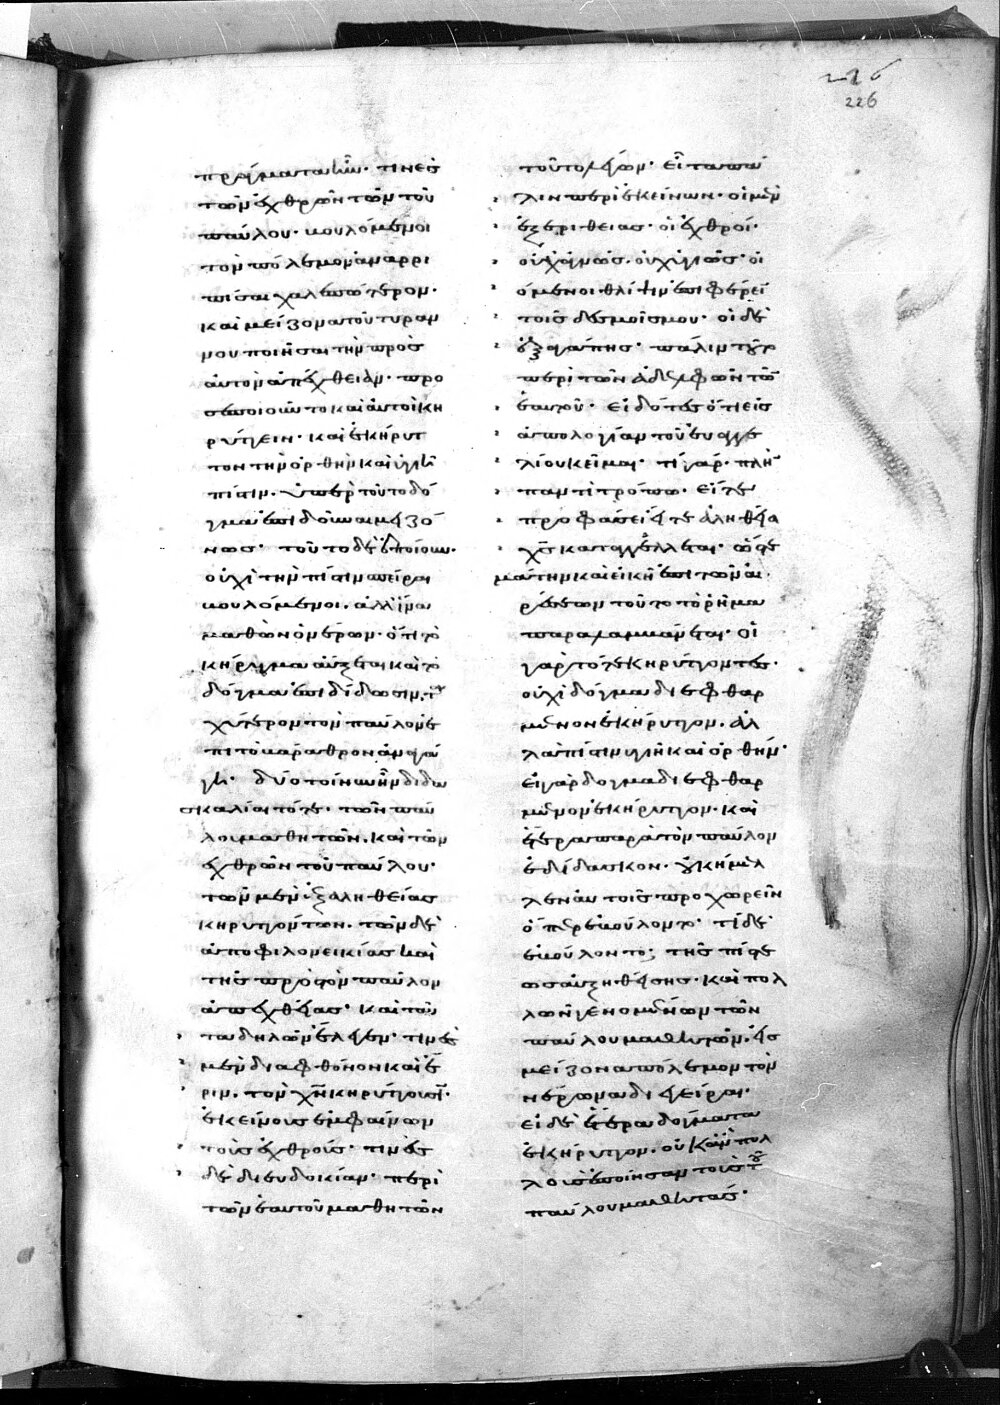 226
226
πράγματα ἦν· τινὲς
τῶν ἐχθρῶν τῶν τοῦ
παύλου· βουλόμενοι
τὸν πόλεμον ἀναρρι
πίσαι χαλεπώτερον·
καὶ μείζονα τοῦ τυράν
νου ποιῆσαι τὴν πρὸς
αὐτὸν ἀπέχθειαν· προ
σεποιοῦντο καὶ αὐτοὶ κη
ρύττειν· καὶ ἐκήρυτ
τον τὴν ὀρθὴν καὶ ὑγιῆ
πίστιν· ὑπὲρ τοῦ τὸ δό
γμα ἐπιδοῦναι μειζό
νως· τοῦτο δὲ ἐποίουν·
οὐχὶ τὴν πίστιν σπεῖραι
βουλόμενοι. ἀλλ' ἵνα
μαθὼν ὁ νέρων· ὅτι τὸ
κήρυγμα αὔξεται καὶ τὸ
δόγμα ἐπιδίδωσιν, τα
χύτερον τὸν παῦλον ἐ
πὶ τὸ βάραθρον ἀναγά
γῃ· δύο τοίνυν ἦν διδα
σκαλίαι τότε· τῶν παύ
λου μαθητῶν. καὶ τῶν
ἐχθρῶν τοῦ παύλου·
τῶν μὲν ἐξ ἀληθείας
κηρυττόντων. τῶν δὲ
ἀπὸ φιλονεικίας καὶ
τῆς πρὸς τὸν παῦλον
ἀπεχθείας· καὶ ταῦ
τα δηλῶν ἔλεγεν· τινὲς
μὲν διὰ φθόνον καὶ ἔ
ριν. τὸν χν κηρύττουσιν·
ἐκείνους ἐμφαίνων
τοὺς ἐχθρούς· τινὲς
δὲ δι' εὐδοκίαν· περὶ
τῶν ἑαυτοῦ μαθητῶν
τοῦτο λέγων· εἶτα πά
λιν περὶ ἐκείνων· οἱ μὲν
ἐξ ἐριθείας· οἱ ἐχθροί·
οὐχ ἁγνῶς. οὐχ ὑγιῶς· οἰ
όμενοι θλίψιν ἐπιφέρει
τοῖς δεσμοῖς μου· οἱ δὲ
ἐξ ἀγάπης· πάλιν τοῦτο
περὶ τῶν ἀδελφῶν τῶν
ἑαυτοῦ· εἰδότες ὅτι εἰς
ἀπολογίαν τοῦ εὐαγγε
λίου κεῖμαι· τί γάρ· πλὴν
παντὶ τρόπῳ· εἴτε
προφάσει εἴτε ἀληθείᾳ
χς καταγγέλλεται· ὥστε
μάτην καὶ εἰκῆ ἐπὶ τῶν αἱ
ρέσεων τοῦτο τὸ ῥῆμα
παραλαμβάνεται· οἱ
γὰρ τότε κηρύττοντες·
οὐχὶ δόγμα διεφθαρ
μένον ἐκήρυττον. ἀλ
λὰ πίστιν ὑγιῆ καὶ ὀρθήν·
εἰ γὰρ δόγμα διεφθαρ
μένον ἐκήρυττον· καὶ
ἕτερα παρὰ τὸν παῦλον
ἐδίδασκον· οὐκ ἤμελ
λεν αὐτοῖς προχωρεῖν
ὅπερ ἐβούλοντο· τί δὲ
ἐβούλοντο; τῆς πίστε
ως αὐξηθείσης· καὶ πολ
λῶν γενομένων τῶν
παύλου μαθητῶν. εἰς
μείζονα πόλεμον τὸν
νέρωνα διεγεῖραι·
εἰ δὲ ἕτερα δόγματα
ἐκήρυττον. οὐκ ἂν πολ
λοὺς ἐποίησαν τοὺς τοῦ
παύλου μαθητάς·